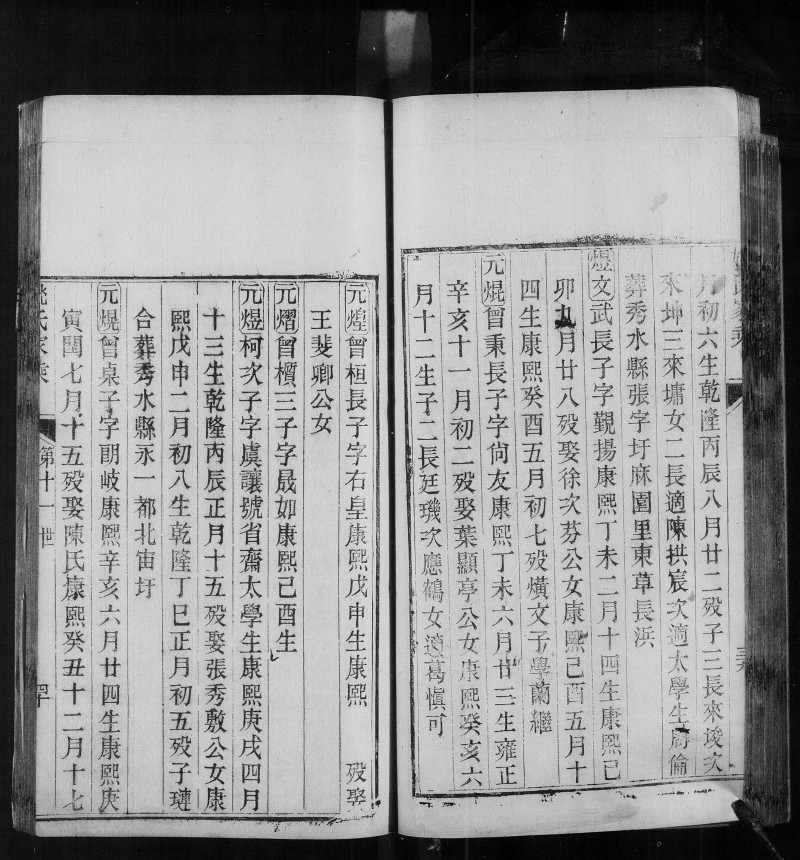 月初六生乾隆丙辰八月廿二歿子三長來浚次
來坤三來墉女二長適陳拱宸次適太學生周倫
葬秀水縣張字圩麻園里東草長浜
煜文武長子字覲揚康熙丁未二月十四生康熙己
卯九月廿八歿娶徐次芬公女康熙己酉五月十
四生康熙癸酉五月初七歿熿文子學蘭繼
元焜曾秉長子字尙友康熙丁未六月廿三生雍正
辛亥十一月初二歿娶葉顯亭公女康熙癸亥六
月十二生子二長廷璣次應鶴女適葛愼可
三九
元煌曾桓長子字右皇康熙戊申生康熙 歿娶
王斐卿公女
元熠曾櫝三子字晟如康熙己酉生
元煜柯次子字虞讓號省齋太學生康熙庚戌四月
十三生乾隆丙辰正月十五歿娶張秀敷公女康
熙戊申二月初八生乾隆丁巳正月初五歿子璉
合葬秀水縣永一都北宙圩
元熀曾桌子字朗岐康熙辛亥六月廿四生康熙庚
寅閏七月十五歿娶陳氏康熙癸丑十二月十七
姚氏家乘 第十一世 四十